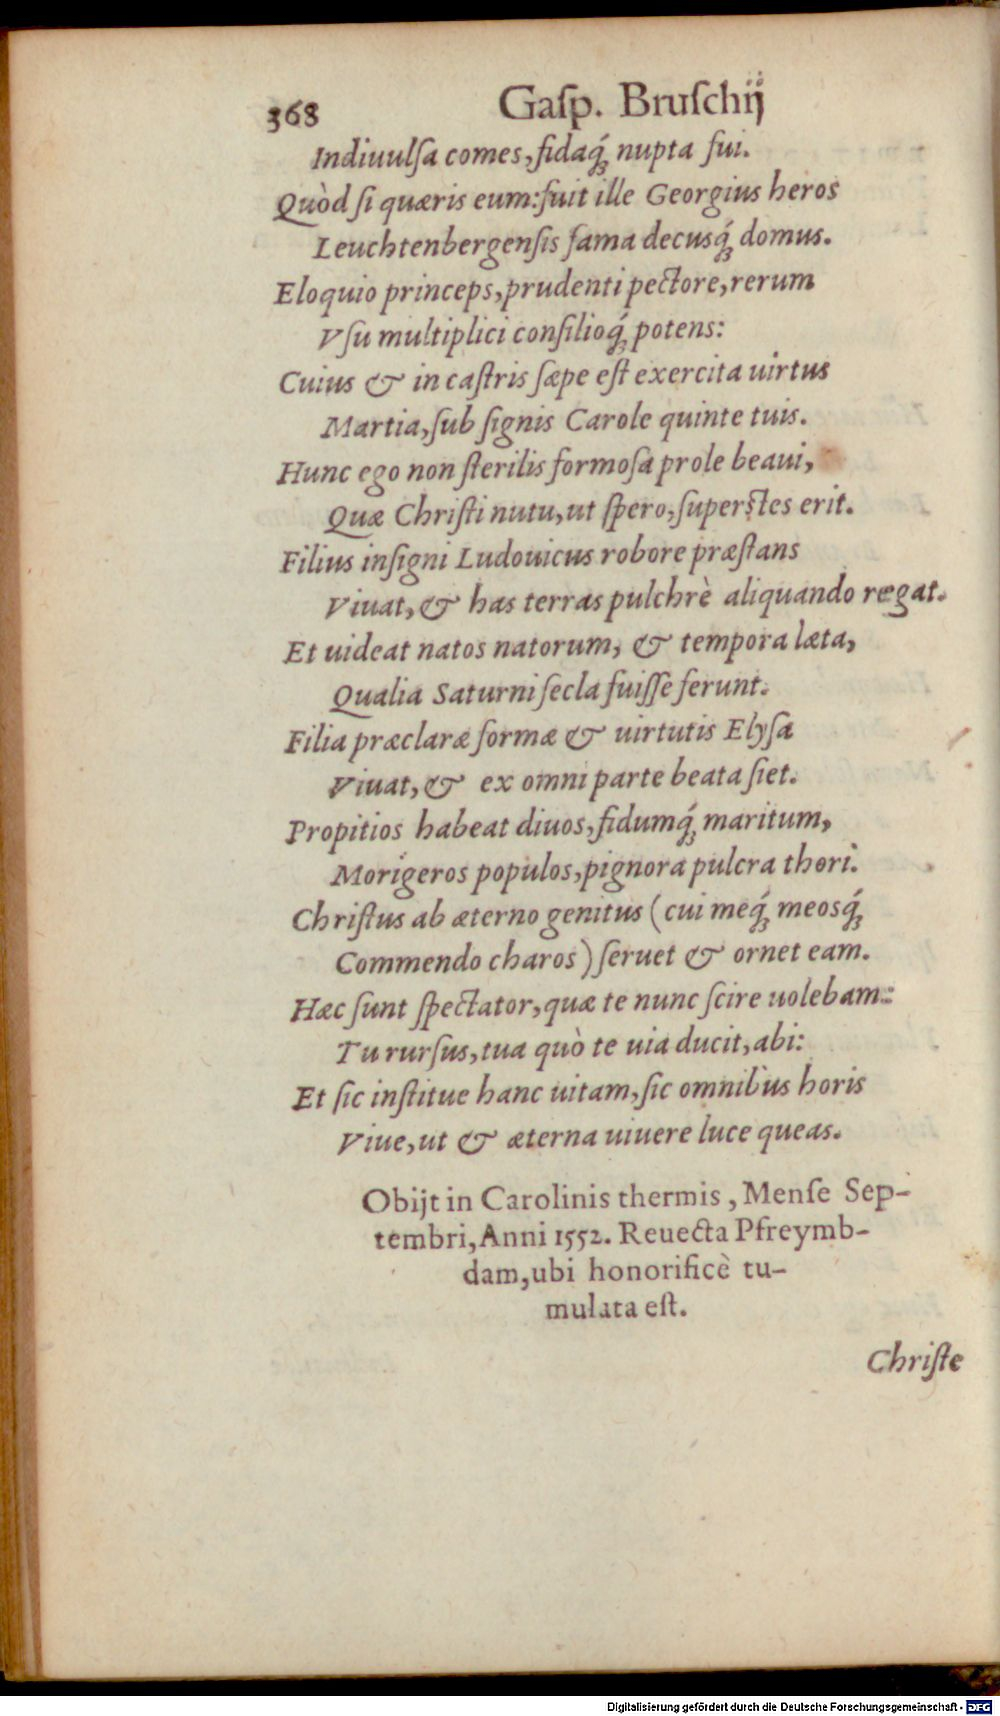 368 Gaſp. Bruſchij
Indiuulſa comes, fidaq́; nupta fui.
Quòd ſi quæris eum: fuit ille Georgius heros
Leuchtenbergenſis fama decusq́; domus.
Eloquio princeps, prudenti pectore, rerum
Vſu multiplici conſilioq́; potens:
Cuius & in caſtris ſæpe eſt exercita uirtus
Martia, ſub ſignis Carole quinte tuis.
Hunc ego non ſterilis formoſa prole beaui,
Quæ Chriſti nutu, ut ſpero, ſuperſtes erit.
Filius inſigni Ludouicus robore præſtans
Viuat, & has terras pulchrè aliquando regat.
Et uideat natos natorum, & tempora læta,
Qualia Saturni ſecla fuiſſe ferunt.
Filia præclaræ formæ & uirtutis Elyſa
Viuat, & ex omni parte beata ſiet.
Propitios habeat diuos, fidumq́; maritum,
Morigeros populos, pignora pulcra thori.
Chriſtus ab æterno genitus (cui meq́; meosq́;
Commendo charos) ſeruet & ornet eam.
Hæc ſunt ſpectator, quæ te nunc ſcire uolebam:
Tu rurſus, tua quò te uia ducit, abi:
Et ſic inſtitue hanc uitam, ſic omnibus horis
Viue, ut & æterna uiuere luce queas.
Obijt in Carolinis thermis, Menſe Sep-
tembri, Anni 1552. Reuecta Pfreymb-
dam, ubi honorificè tu-
mulata eſt.
Chriſte
Digitalisierung gefördert durch die Deutsche Forschungsgemeinschaft - DFG